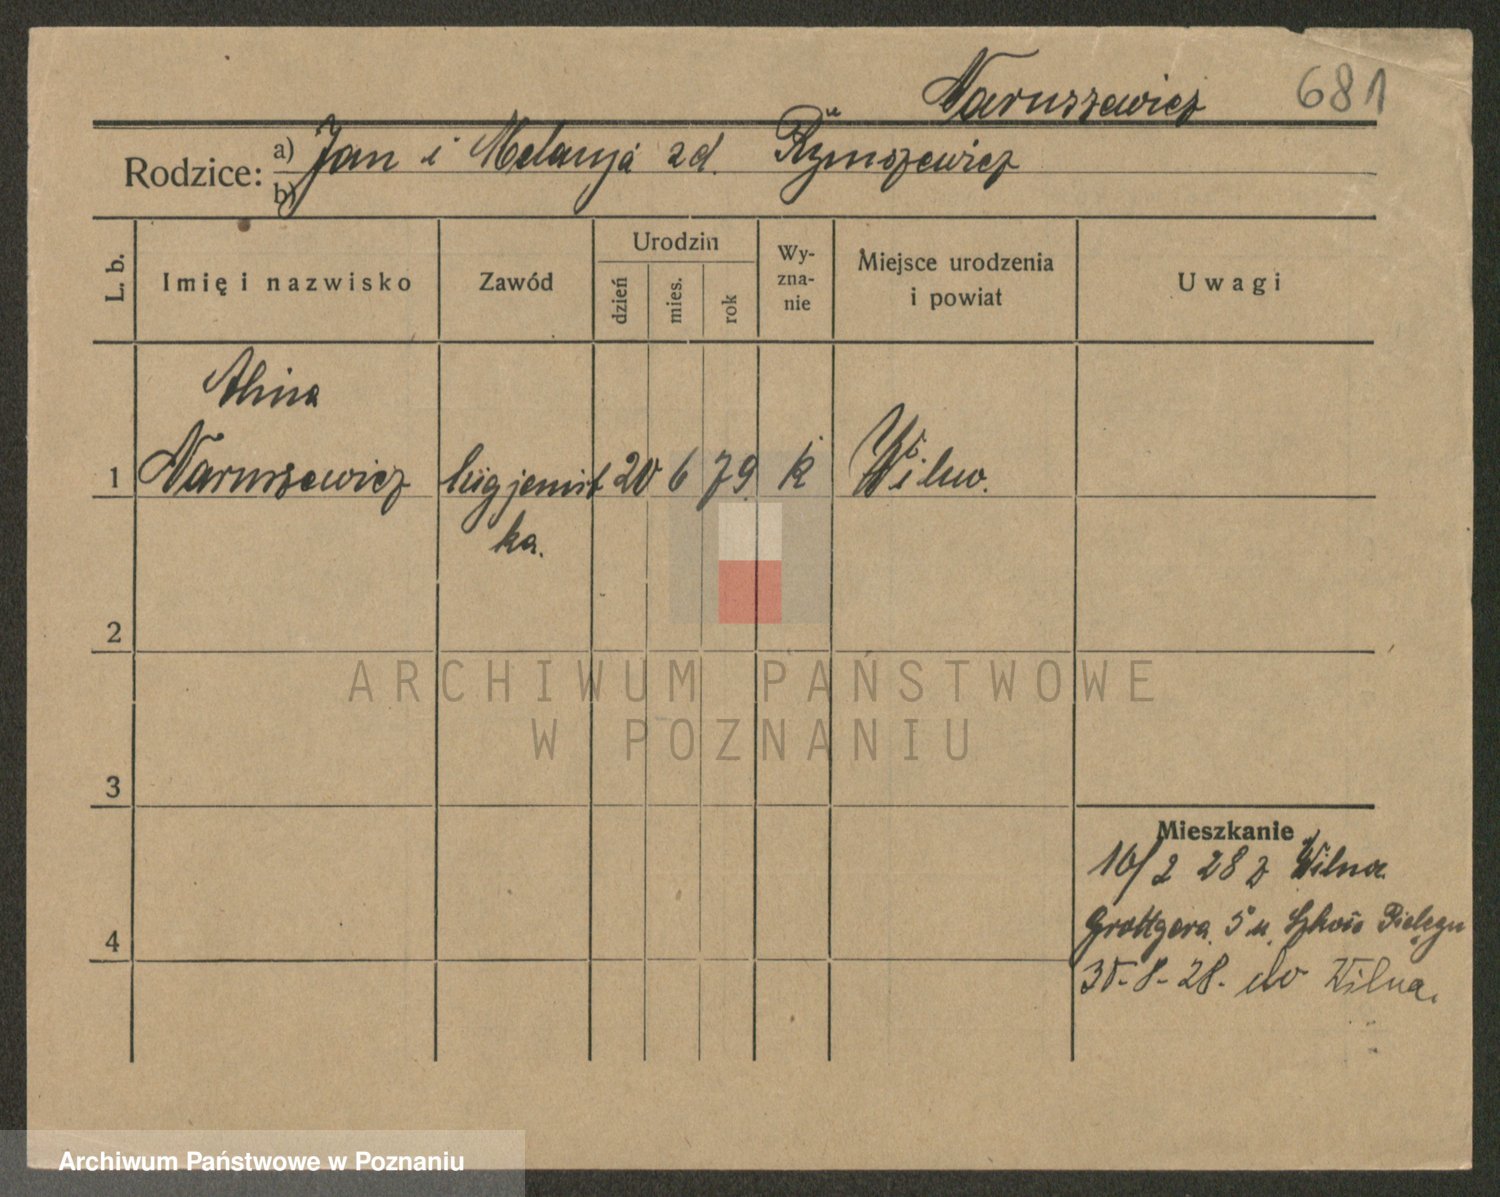 Naruszewicz 681
Rodzice: a) Jan i Melanja zd. Rymszewicz
b)
L. b.
Imię i nazwisko
Zawód
Urodzin
dzień
mies.
rok
Wy-
zna-
nie
Miejsce urodzenia
i powiat
Uwagi
Alina
1 Naruszewicz higjenist 20 6 79 k Wilno.
ka.
2
ARCHIWUM PAŃSTWOWE
W POZNANIU
3
Mieszkanie
10/2 28 z Wilna
Grottgera 5 u. Szkoła Pielęgn
4
30-8-28. do Wilna.
Archiwum Państwowe w Poznaniu